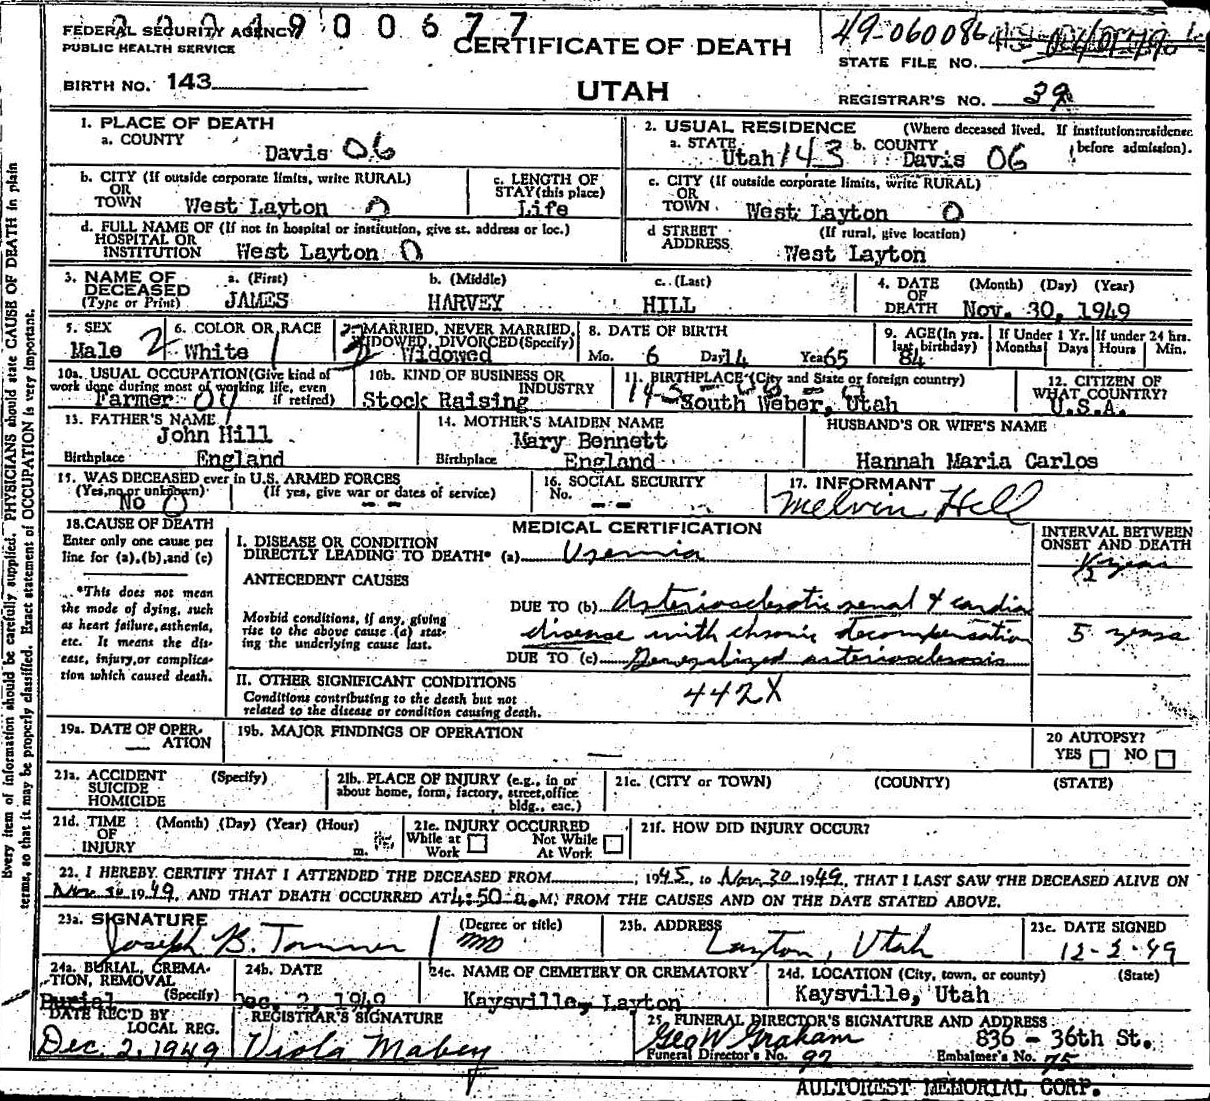 2 0 0 4 9 0 0 6 7 7
FEDERAL SECURITY AGENCY
PUBLIC HEALTH SERVICE
CERTIFICATE OF DEATH
49-060086
STATE FILE NO.
BIRTH NO. 143
UTAH
REGISTRAR'S NO. 39
1. PLACE OF DEATH
a. COUNTY
Davis 06
2. USUAL RESIDENCE (Where deceased lived. If institution: residence before admission).
a. STATE Utah 143 b. COUNTY Davis 06
b. CITY (If outside corporate limits, write RURAL)
OR
TOWN West Layton 0
c. LENGTH OF
STAY (this place)
Life
c. CITY (If outside corporate limits, write RURAL)
OR
TOWN. West Layton 0
d. FULL NAME OF (If not in hospital or institution, give st. address or loc.)
HOSPITAL OR
INSTITUTION West Layton 0
d STREET (If rural, give location)
ADDRESS West Layton
3. NAME OF
DECEASED
(Type or Print)
a. (First)
JAMES
b. (Middle)
HARVEY
c. (Last)
HILL
4. DATE (Month) (Day) (Year)
OF
DEATH Nov. 30, 1949
5. SEX
Male 2
6. COLOR OR RACE
White 1
MARRIED, NEVER MARRIED,
WIDOWED, DIVORCED (Specify)
Widowed
8. DATE OF BIRTH
Mo. 6 Day 14 Year 65
9. AGE (In yrs.
last birthday)
84
If Under 1 Yr.
Months Days
If under 24 hrs.
Hours Min.
10a. USUAL OCCUPATION (Give kind of
work done during most of working life, even
if retired)
Farmer
10b. KIND OF BUSINESS OR
INDUSTRY
Stock Raising
11. BIRTHPLACE (City and State or foreign country)
South Weber, Utah
12. CITIZEN OF
WHAT COUNTRY?
U.S.A.
13. FATHER'S NAME
John Hill
Birthplace England
14. MOTHER'S MAIDEN NAME
Mary Bennett
Birthplace England
HUSBAND'S OR WIFE'S NAME
Hannah Maria Carlos
15. WAS DECEASED ever in U.S. ARMED FORCES
(Yes, no or unknown) (If yes, give war or dates of service)
No 0 - -
16. SOCIAL SECURITY
No. - -
17. INFORMANT
Melvin Hill
18. CAUSE OF DEATH
Enter only one cause per
line for (a), (b), and (c)
*This does not mean
the mode of dying, such
as heart failure, asthenia,
etc. It means the dis-
ease, injury, or complica-
tion which caused death.
MEDICAL CERTIFICATION
INTERVAL BETWEEN
ONSET AND DEATH
I. DISEASE OR CONDITION
DIRECTLY LEADING TO DEATH* (a) Uremia
½ year
ANTECEDENT CAUSES
Morbid conditions, if any, giving
rise to the above cause (a) stat-
ing the underlying cause last.
DUE TO (b) Arteriosclerotic renal & cardiac
disease with chronic decompensation
5 years
DUE TO (c) Generalized arteriosclerosis
II. OTHER SIGNIFICANT CONDITIONS
Conditions contributing to the death but not
related to the disease or condition causing death.
442X
19a. DATE OF OPER-
ATION —
19b. MAJOR FINDINGS OF OPERATION
—
20 AUTOPSY?
YES NO
21a. ACCIDENT (Specify)
SUICIDE
HOMICIDE
21b. PLACE OF INJURY (e.g., in or
about home, form, factory, street, office
bldg., eac.)
21c. (CITY or TOWN) (COUNTY) (STATE)
21d. TIME (Month) (Day) (Year) (Hour)
OF
INJURY m.
21e. INJURY OCCURRED
While at Work
Not While At Work
21f. HOW DID INJURY OCCUR?
22. I HEREBY CERTIFY THAT I ATTENDED THE DECEASED FROM , 1945, to Nov. 30 1949, THAT I LAST SAW THE DECEASED ALIVE ON
Nov. 30 1949, AND THAT DEATH OCCURRED AT 4:50 a.M; FROM THE CAUSES AND ON THE DATE STATED ABOVE.
23a. SIGNATURE (Degree or title)
Joseph B. Tanner MD
23b. ADDRESS
Layton, Utah
23c. DATE SIGNED
12-2-49
24a. BURIAL, CREMA-
TION, REMOVAL
(Specify)
Burial
24b. DATE
Dec. 2, 1949
24c. NAME OF CEMETERY OR CREMATORY
Kaysville, Layton
24d. LOCATION (City, town, or county) (State)
Kaysville, Utah
DATE REC'D BY
LOCAL REG.
Dec. 2, 1949
REGISTRAR'S SIGNATURE
Viola Mabey
25. FUNERAL DIRECTOR'S SIGNATURE AND ADDRESS
Geo W Graham 836 - 36th St.
Funeral Director's No. 97 Embalmer's No. 75
AULTOREST MEMORIAL CORP.
Every item of information should be carefully supplied. PHYSICIANS should state CAUSE OF DEATH in plain
terms, so that it may be properly classified. Exact statement of OCCUPATION is very important.